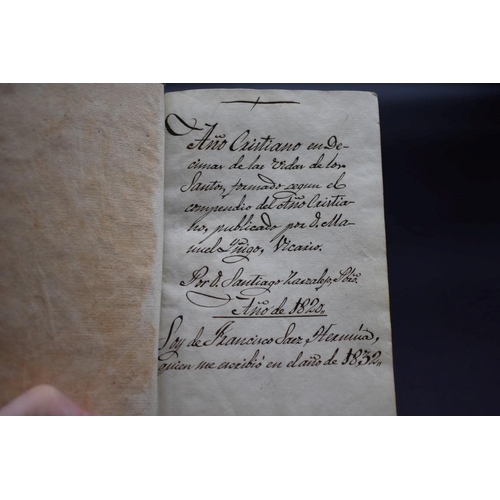 Año Cristiano en De-
cimas de las Vidas de los
Santos, formado segun el
compendio del Año Cristia-
no, publicado por D. Ma-
nuel Yñigo, Vicario.
Por D. Santiago Pbro.
Año de 1820.
Soy de Francisco Saez, Hermina,
quien me escribió en el año de 1832.